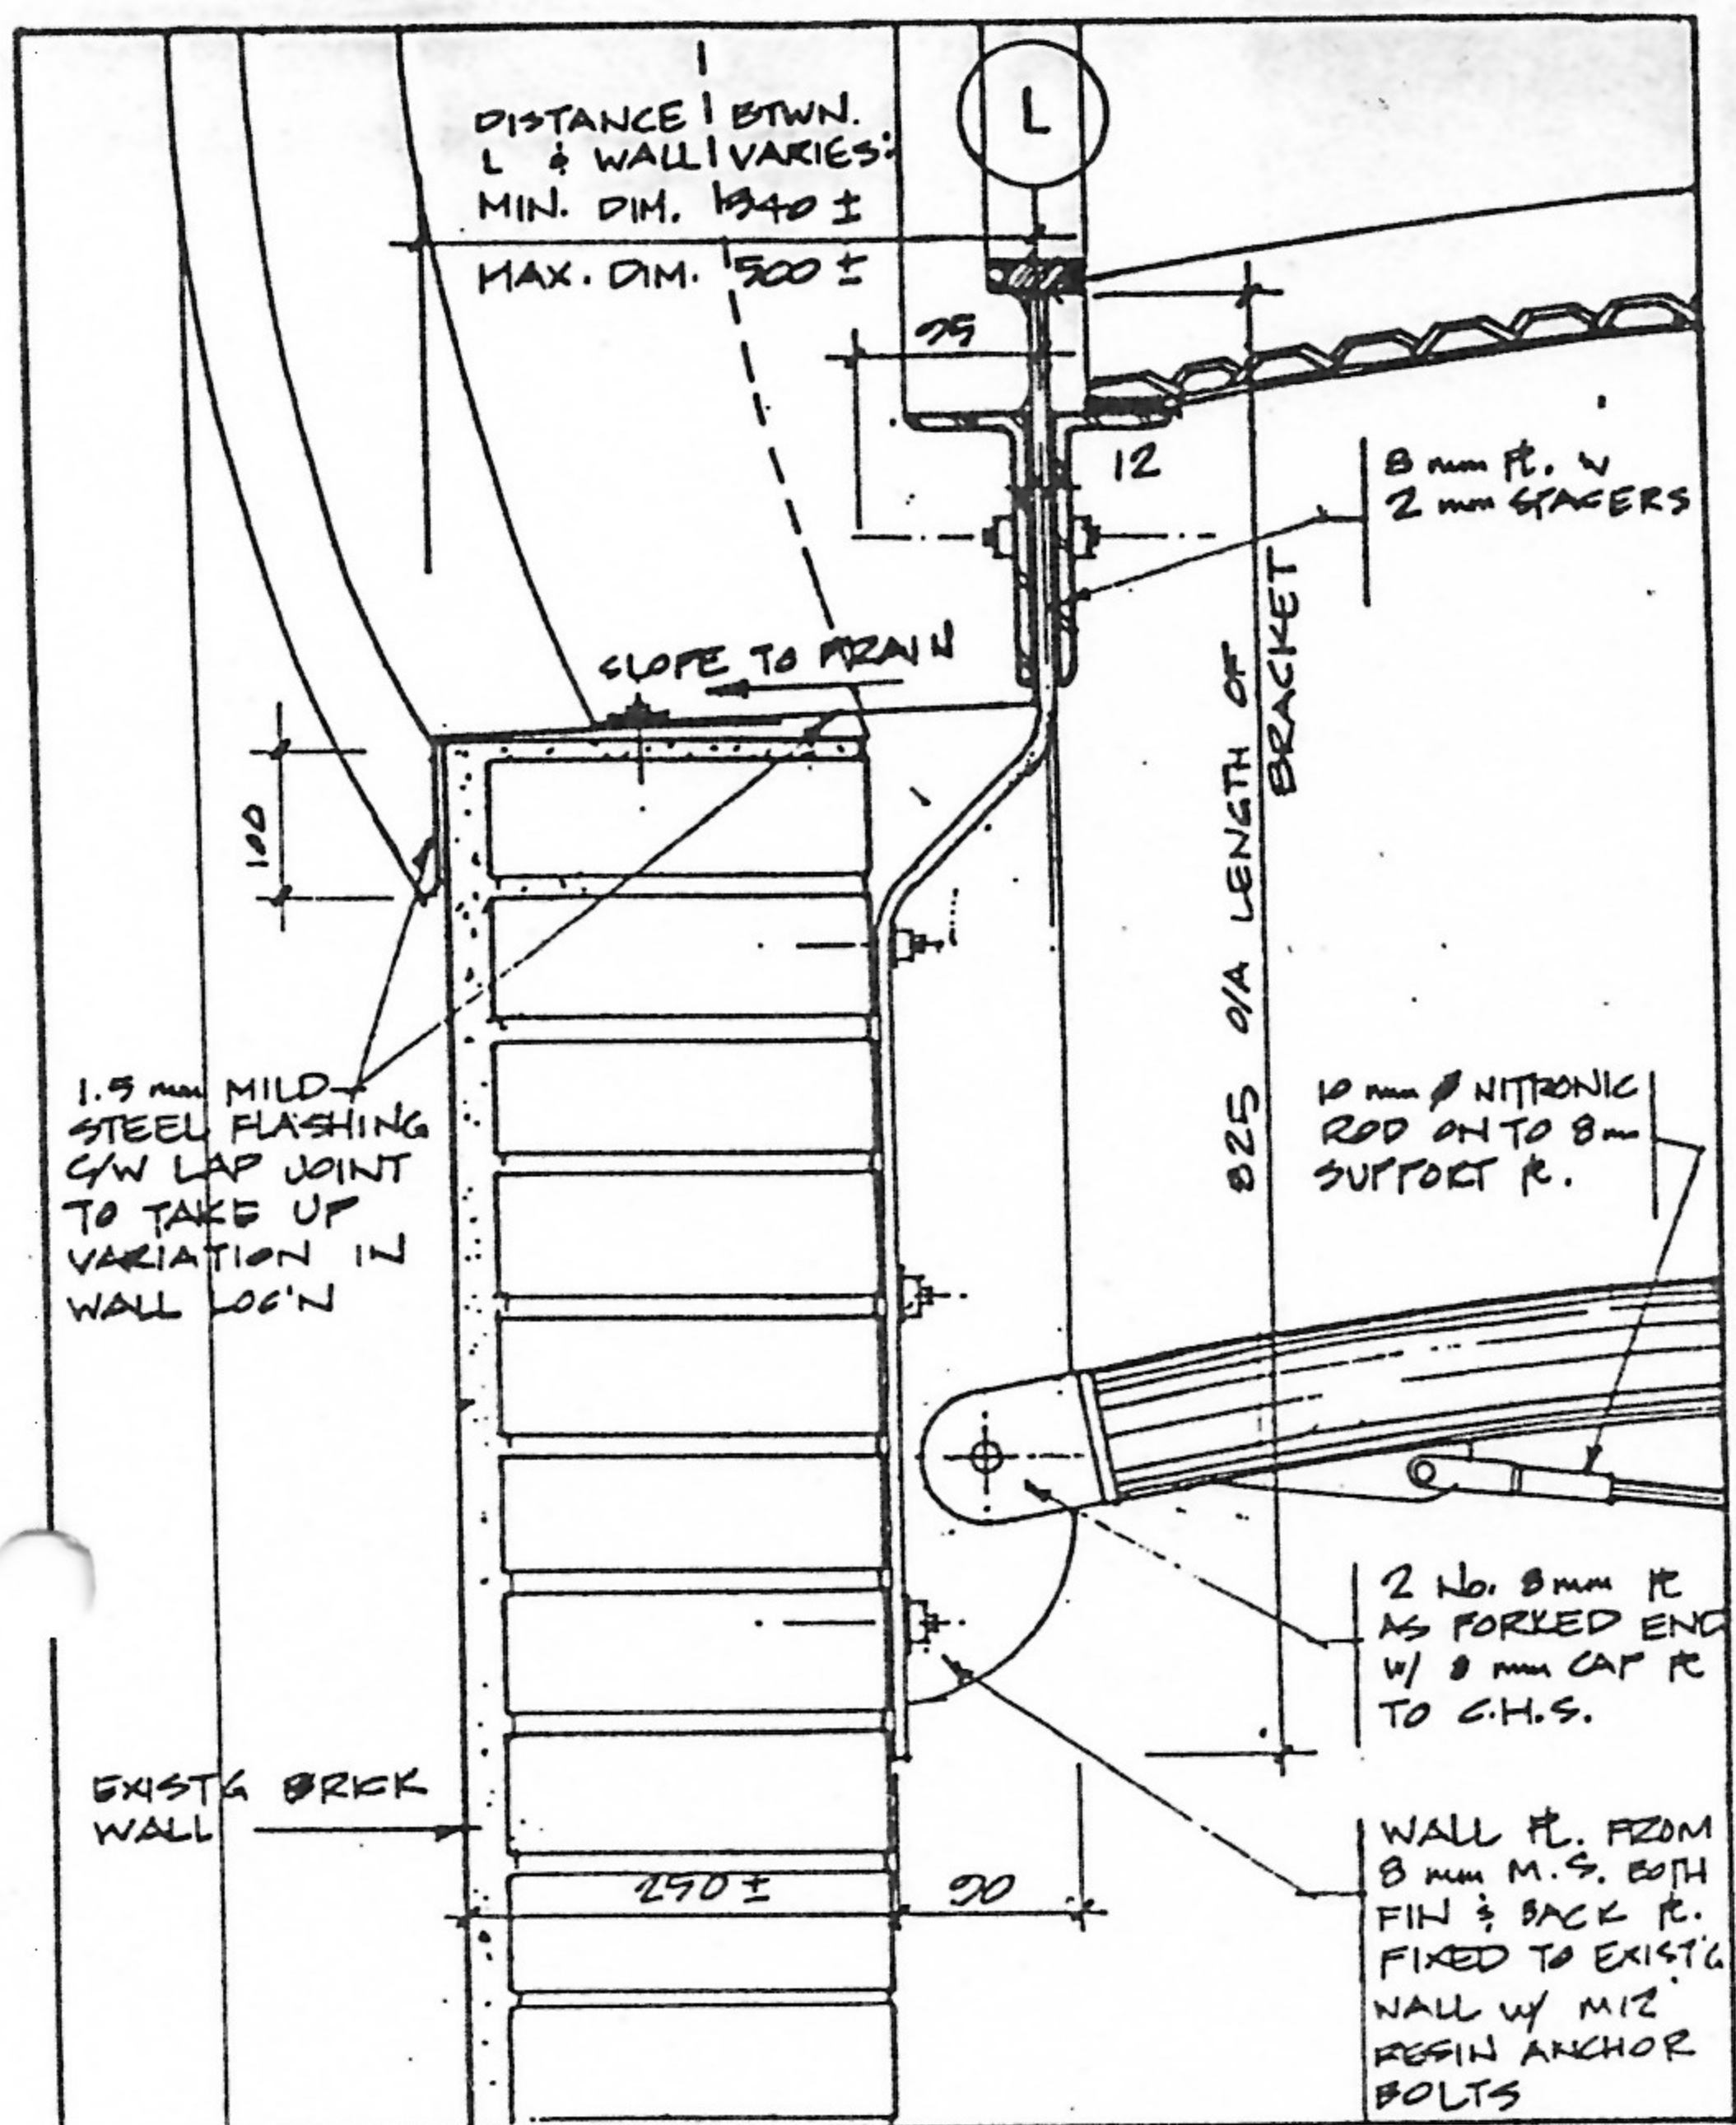 DISTANCE BTWN.
L & WALL VARIES:
MIN. DIM. 340 ±
MAX. DIM. 500 ±
L
95
12
8 mm PL. W
2 mm SPACERS
SLOPE TO DRAIN
100
825 O/A LENGTH OF
BRACKET
1.5 mm MILD
STEEL FLASHING
C/W LAP JOINT
TO TAKE UP
VARIATION IN
WALL LOC'N
10 mm Ø NITRONIC
ROD ON TO 8 mm
SUPPORT PL.
2 No. 8 mm PL
AS FORKED END
W/ 8 mm CAP PL
TO C.H.S.
EXIST'G BRICK
WALL
250 ±
90
WALL PL. FROM
8 mm M.S. BOTH
FIN & BACK PL.
FIXED TO EXIST'G
WALL W/ M12
RESIN ANCHOR
BOLTS